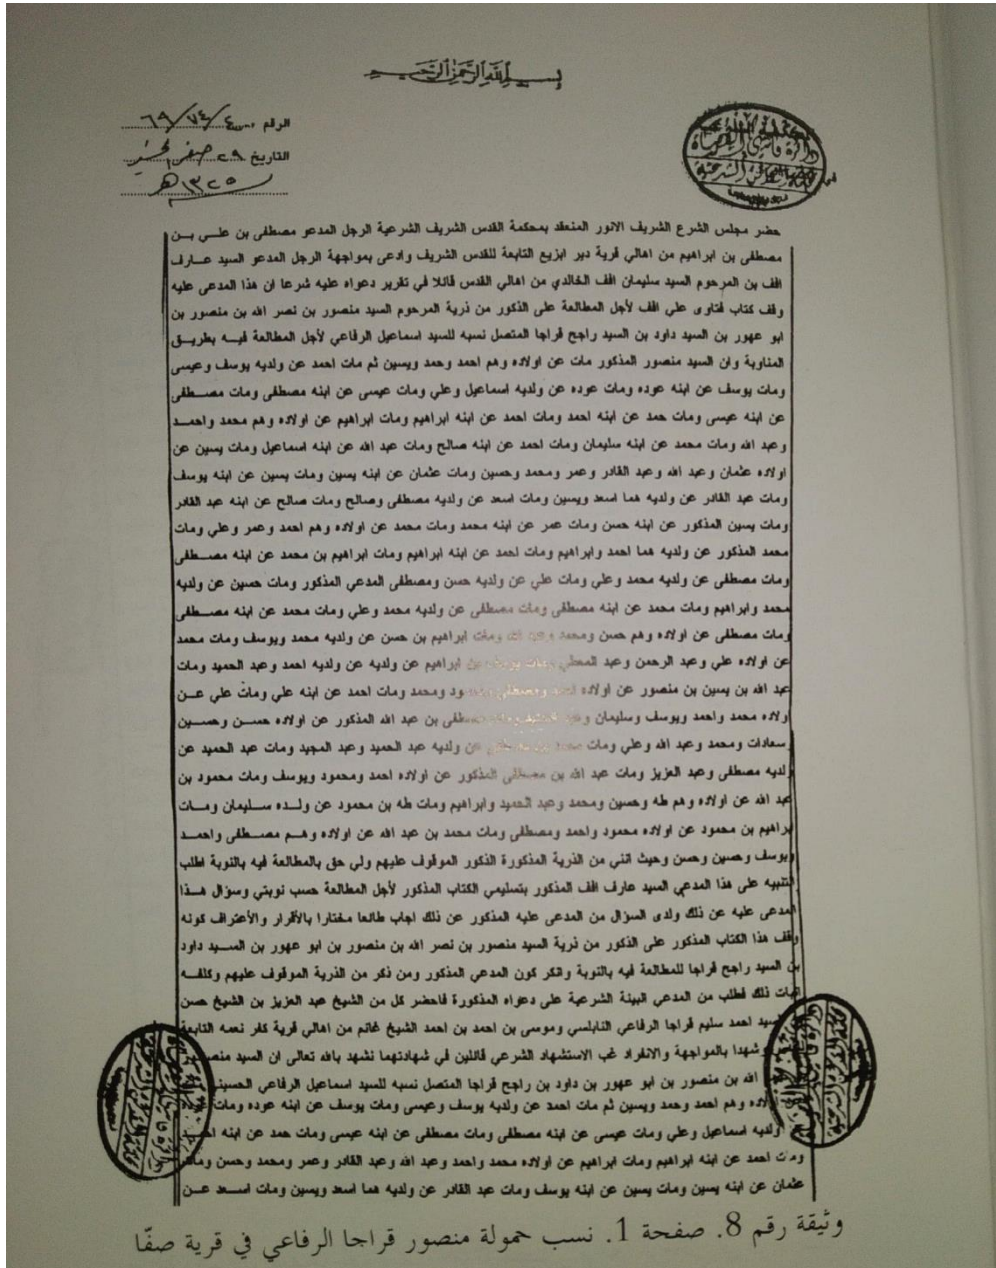 بسم الله الرحمن الرحيم
الرقم ٦٩/٧٤/٤
التاريخ ٢٩ صفر الخير
١٣٢٥هـ
حضر مجلس الشرع الشريف الانور المنعقد بمحكمة القدس الشريف الشرعية الرجل المدعو مصطفى بن علي بن
مصطفى بن ابراهيم من اهالي قرية دير ابزيع التابعة للقدس الشريف وادعى بمواجهة الرجل المدعو السيد عارف
افف بن المرحوم السيد سليمان افف الخالدي من اهالي القدس قائلا في تقرير دعواه عليه شرعا ان هذا المدعى عليه
وقف كتاب فتاوى علي افف لأجل المطالعة على الذكور من ذرية المرحوم السيد منصور بن نصر الله بن منصور بن
ابو عهور بن السيد داود بن السيد راجح قراجا المتصل نسبه للسيد اسماعيل الرفاعي لأجل المطالعة فيه بطريق
المناوبة وان السيد منصور المذكور مات عن اولاده وهم احمد وحمد ويسين ثم مات احمد عن ولديه يوسف وعيسى
ومات يوسف عن ابنه عوده ومات عوده عن ولديه اسماعيل وعلي ومات عيسى عن ابنه مصطفى ومات مصطفى
عن ابنه عيسى ومات حمد عن ابنه احمد ومات احمد عن ابنه ابراهيم ومات ابراهيم عن اولاده وهم محمد واحمد
وعبد الله ومات محمد عن ابنه سليمان ومات احمد عن ابنه صالح ومات عبد الله عن ابنه اسماعيل ومات يسين عن
اولاده عثمان وعبد الله وعبد القادر وعمر ومحمد وحسين ومات عثمان عن ابنه يسين ومات يسين عن ابنه يوسف
ومات عبد القادر عن ولديه هما اسعد ويسين ومات اسعد عن ولديه مصطفى وصالح ومات صالح عن ابنه عبد القادر
ومات يسين المذكور عن ابنه حسن ومات عمر عن ابنه محمد ومات محمد عن اولاده وهم احمد وعمر وعلي ومات
محمد المذكور عن ولديه هما احمد وابراهيم ومات احمد عن ابنه ابراهيم ومات ابراهيم بن محمد عن ابنه مصطفى
ومات مصطفى عن ولديه محمد وعلي ومات علي عن ولديه حسن ومصطفى المدعي المذكور ومات حسين عن ولديه
محمد وابراهيم ومات محمد عن ابنه مصطفى ومات مصطفى عن ولديه محمد وعلي ومات محمد عن ابنه مصطفى
ومات مصطفى عن اولاده وهم حسن ومحمد وعبد الله ومات ابراهيم بن حسن عن ولديه محمد ويوسف ومات محمد
عن اولاده علي وعبد الرحمن وعبد المعطي ومات يوسف بن ابراهيم عن ولديه عن ولديه احمد وعبد الحميد ومات
عبد الله بن يسين بن منصور عن اولاده احمد ومصطفى ومحمود ومحمد ومات احمد عن ابنه علي ومات علي عن
اولاده محمد واحمد ويوسف وسليمان ومات مصطفى بن عبد الله المذكور عن اولاده حسن وحسين
وسعادات ومحمد وعبد الله وعلي ومات محمد بن مصطفى عن ولديه عبد الحميد وعبد المجيد ومات عبد الحميد عن
ولديه مصطفى وعبد العزيز ومات عبد الله بن مصطفى المذكور عن اولاده احمد ومحمود ويوسف ومات محمود بن
عبد الله عن اولاده وهم طه وحسين ومحمد وعبد الحميد وابراهيم ومات طه بن محمود عن ولده سليمان ومات
ابراهيم بن محمود عن اولاده محمود واحمد ومصطفى ومات محمد بن عبد الله عن اولاده وهم مصطفى واحمد
ويوسف وحسين وحسن وحيث انني من الذرية المذكورة الذكور الموقوف عليهم ولي حق بالمطالعة فيه بالنوبة اطلب
التنبيه على هذا المدعي السيد عارف افف المذكور بتسليمي الكتاب المذكور لأجل المطالعة حسب نوبتي وسؤال هذا
المدعى عليه عن ذلك ولدى السؤال من المدعى عليه المذكور عن ذلك اجاب طائعا مختارا بالأقرار والأعتراف كونه
وقف هذا الكتاب المذكور على الذكور من ذرية السيد منصور بن نصر الله بن منصور بن ابو عهور بن السيد داود
بن السيد راجح قراجا للمطالعة فيه بالنوبة وانكر كون المدعي المذكور ومن ذكر من الذرية الموقوف عليهم وكلفه
اثبات ذلك فطلب من المدعي البينة الشرعية على دعواه المذكورة فاحضر كل من الشيخ عبد العزيز بن الشيخ حسن
السيد احمد سليم قراجا الرفاعي النابلسي وموسى بن احمد بن احمد الشيخ غانم من اهالي قرية كفر نعمه التابعة
شهدا بالمواجهة والانفراد غب الاستشهاد الشرعي قائلين في شهادتهما نشهد بالله تعالى ان السيد منصور
الله بن منصور بن ابو عهور بن داود بن راجح قراجا المتصل نسبه للسيد اسماعيل الرفاعي الحسيني
اولاده وهم احمد وحمد ويسين ثم مات احمد عن ولديه يوسف وعيسى ومات يوسف عن ابنه عوده ومات
ولديه اسماعيل وعلي ومات عيسى عن ابنه مصطفى ومات مصطفى عن ابنه عيسى ومات حمد عن ابنه احمد
ومات احمد عن ابنه ابراهيم ومات ابراهيم عن اولاده محمد واحمد وعبد الله وعبد القادر وعمر ومحمد وحسن ومات
عثمان عن ابنه يسين ومات يسين عن ابنه يوسف ومات عبد القادر عن ولديه هما اسعد ويسين ومات اسعد عن
وثيقة رقم 8. صفحة 1. نسب حمولة منصور قراجا الرفاعي في قرية صفّا